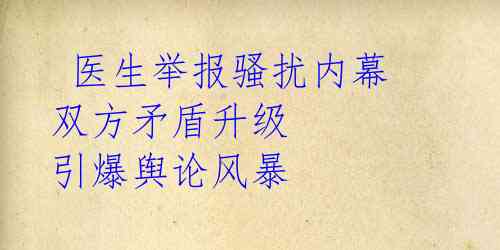 医生举报骚扰内幕
双方矛盾升级
引爆舆论风暴